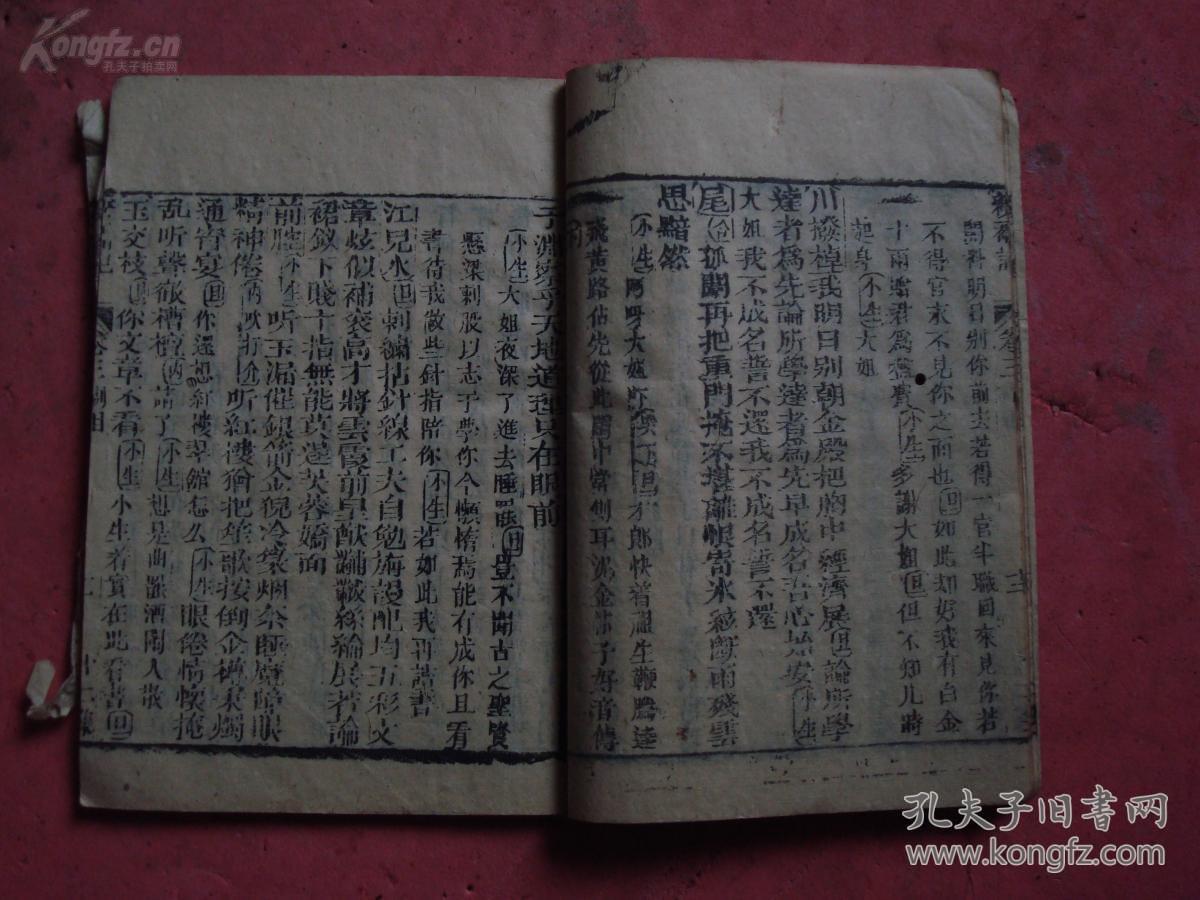 Kongfz.cn
孔夫子拍卖网
開科明日別你前去若得一官半職回來見你若
不得官來不見你之面也旦如此却好我有白金
十兩贈君為 費小生多謝大姐旦但不知几時
起身小生大姐
川撥棹我明日別朝金殿把胸中經濟展旦論所學
達者爲先論所學達者爲先早成名吾心始安小生
大姐我不成名誓不還我不成名誓不還
尾合孤闈再把重門掩不堪離恨寄氷 斷雨殘雲
思黯然
小生阿呀大姐 郎快着 生鞭騰達
飛黃路佔先從此 中常側耳 金 子好音傳
子淵 乎天地道理只在眼前
小生大姐夜深了進去睡罷旦豈不聞古之聖賢
懸梁刺股以志于學你今懶惰焉能有成你且看
書待我做些針指陪你小生若如此我再讀書
江兒水旦刺繡拈針線工夫自勉旃謾配均五彩文
章炫似補袞高才將雲霞前呈獻黼黻絲綸展若論
裙釵下賤十指無能莫逞芙蓉嬌面
前腔小生听玉漏催銀箭金猊冷篆烟奈睡魔障眼
精神倦内吹打介听紅樓猶把笙歌按倒金樽秉燭
通宵宴旦你還想紅樓翠館怎么小生眼倦情懷掩
乱听聲歇槽檀内請了小生想是曲 酒闌人散
玉交枝旦你文章不看小生小生着實在此看書旦
卷三
孔夫子旧书网
www.kongfz.com